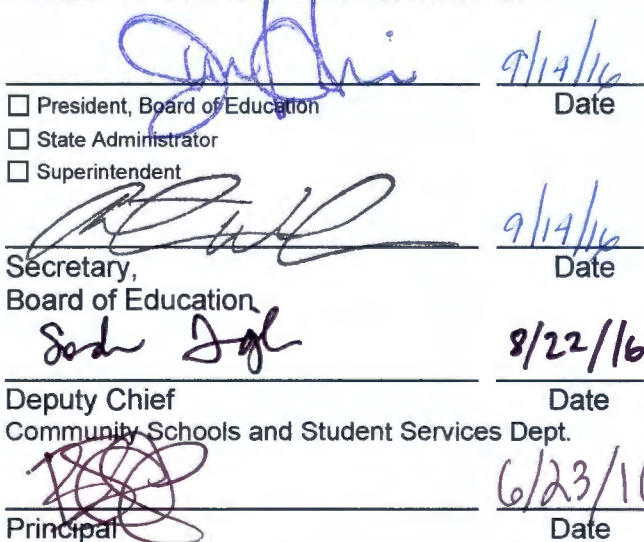 9/14/16
Date
☐ President, Board of Education
☐ State Administrator
☐ Superintendent
9/14/16
Secretary,
Date
Board of Education
8/22/16
Deputy Chief
Date
Community Schools and Student Services Dept.
6/23/1
Principal
Date